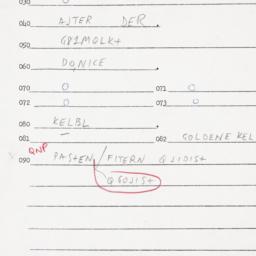 030 O
040 AJTER DER
050 G81MOLK+
060 DO,NICE
070 O 071 O
072 O 073 O
080 KELBL
081 — 082 GOLDENE KEL
QNP
090 PAS+EN / FITERN QJIDIS+
QGOJIS+